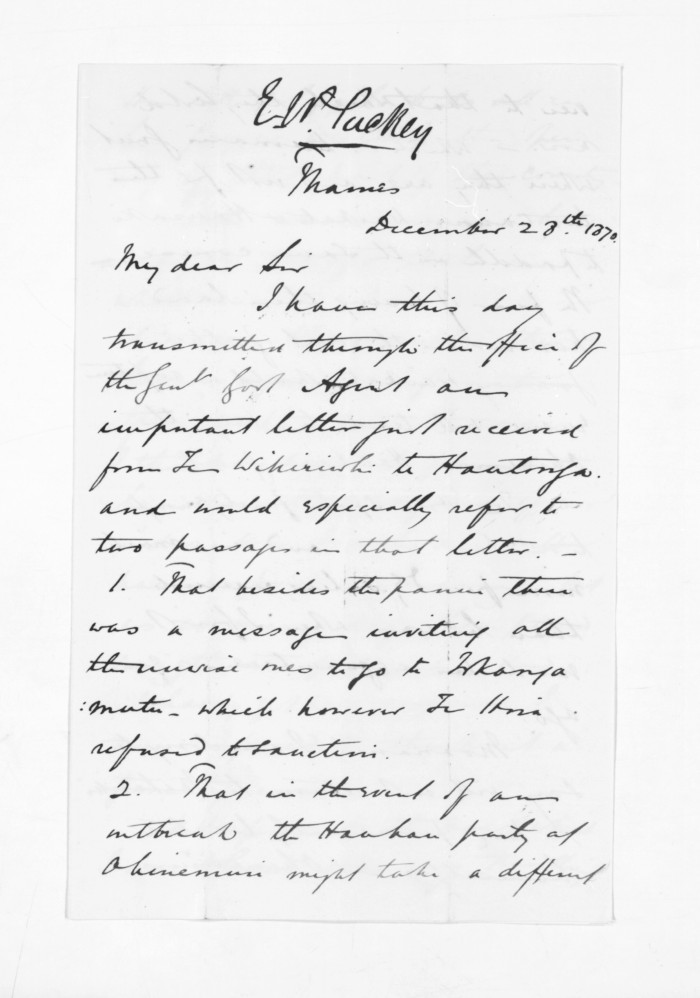 E. W. Puckey
Thames
December 28th. 1870.
My dear Sir
I have this day
transmitted through the office of
the Genl Govt Agent an
important letter just received
from Te to Hautonga.
and would especially refer to
two passages in that letter. –
1. That besides the panui there
was a message inviting all
the unwise ones to go to Tokanga
:mutu – which however Te Hira
refused to sanction.
2. That in the event of an
outbreak the Hauhau party at
Ohinemuri might take a different